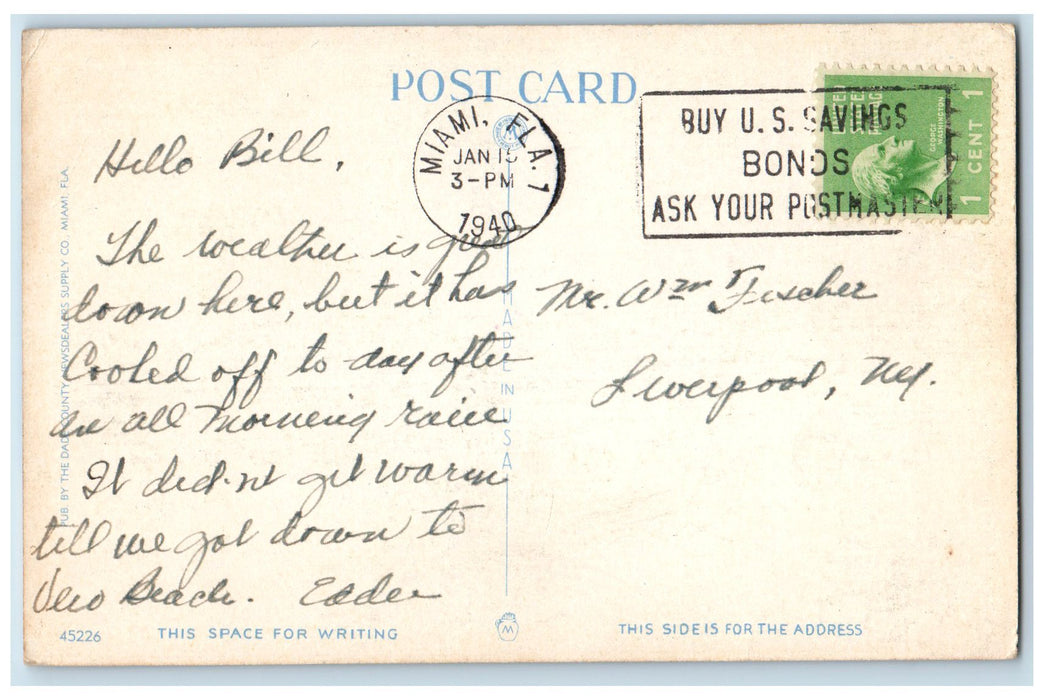 POST CARD
MIAMI, FLA. 1
JAN 15
3-PM
1940
BUY U. S. SAVINGS
BONDS
ASK YOUR POSTMASTER
GEORGE WASHINGTON
1 CENT 1
Hello Bill,
The weather is great
down here, but it has
Cooled off to day after
an all morning rain
It did-nt get warm
till we got down to
Vero Beach. Eddie
Mr. Wm Fischer
Liverpool, NY.
PUB. BY THE DADE COUNTY NEWSDEALERS SUPPLY CO. MIAMI, FLA.
MADE IN USA
45226
THIS SPACE FOR WRITING
M
THIS SIDE IS FOR THE ADDRESS